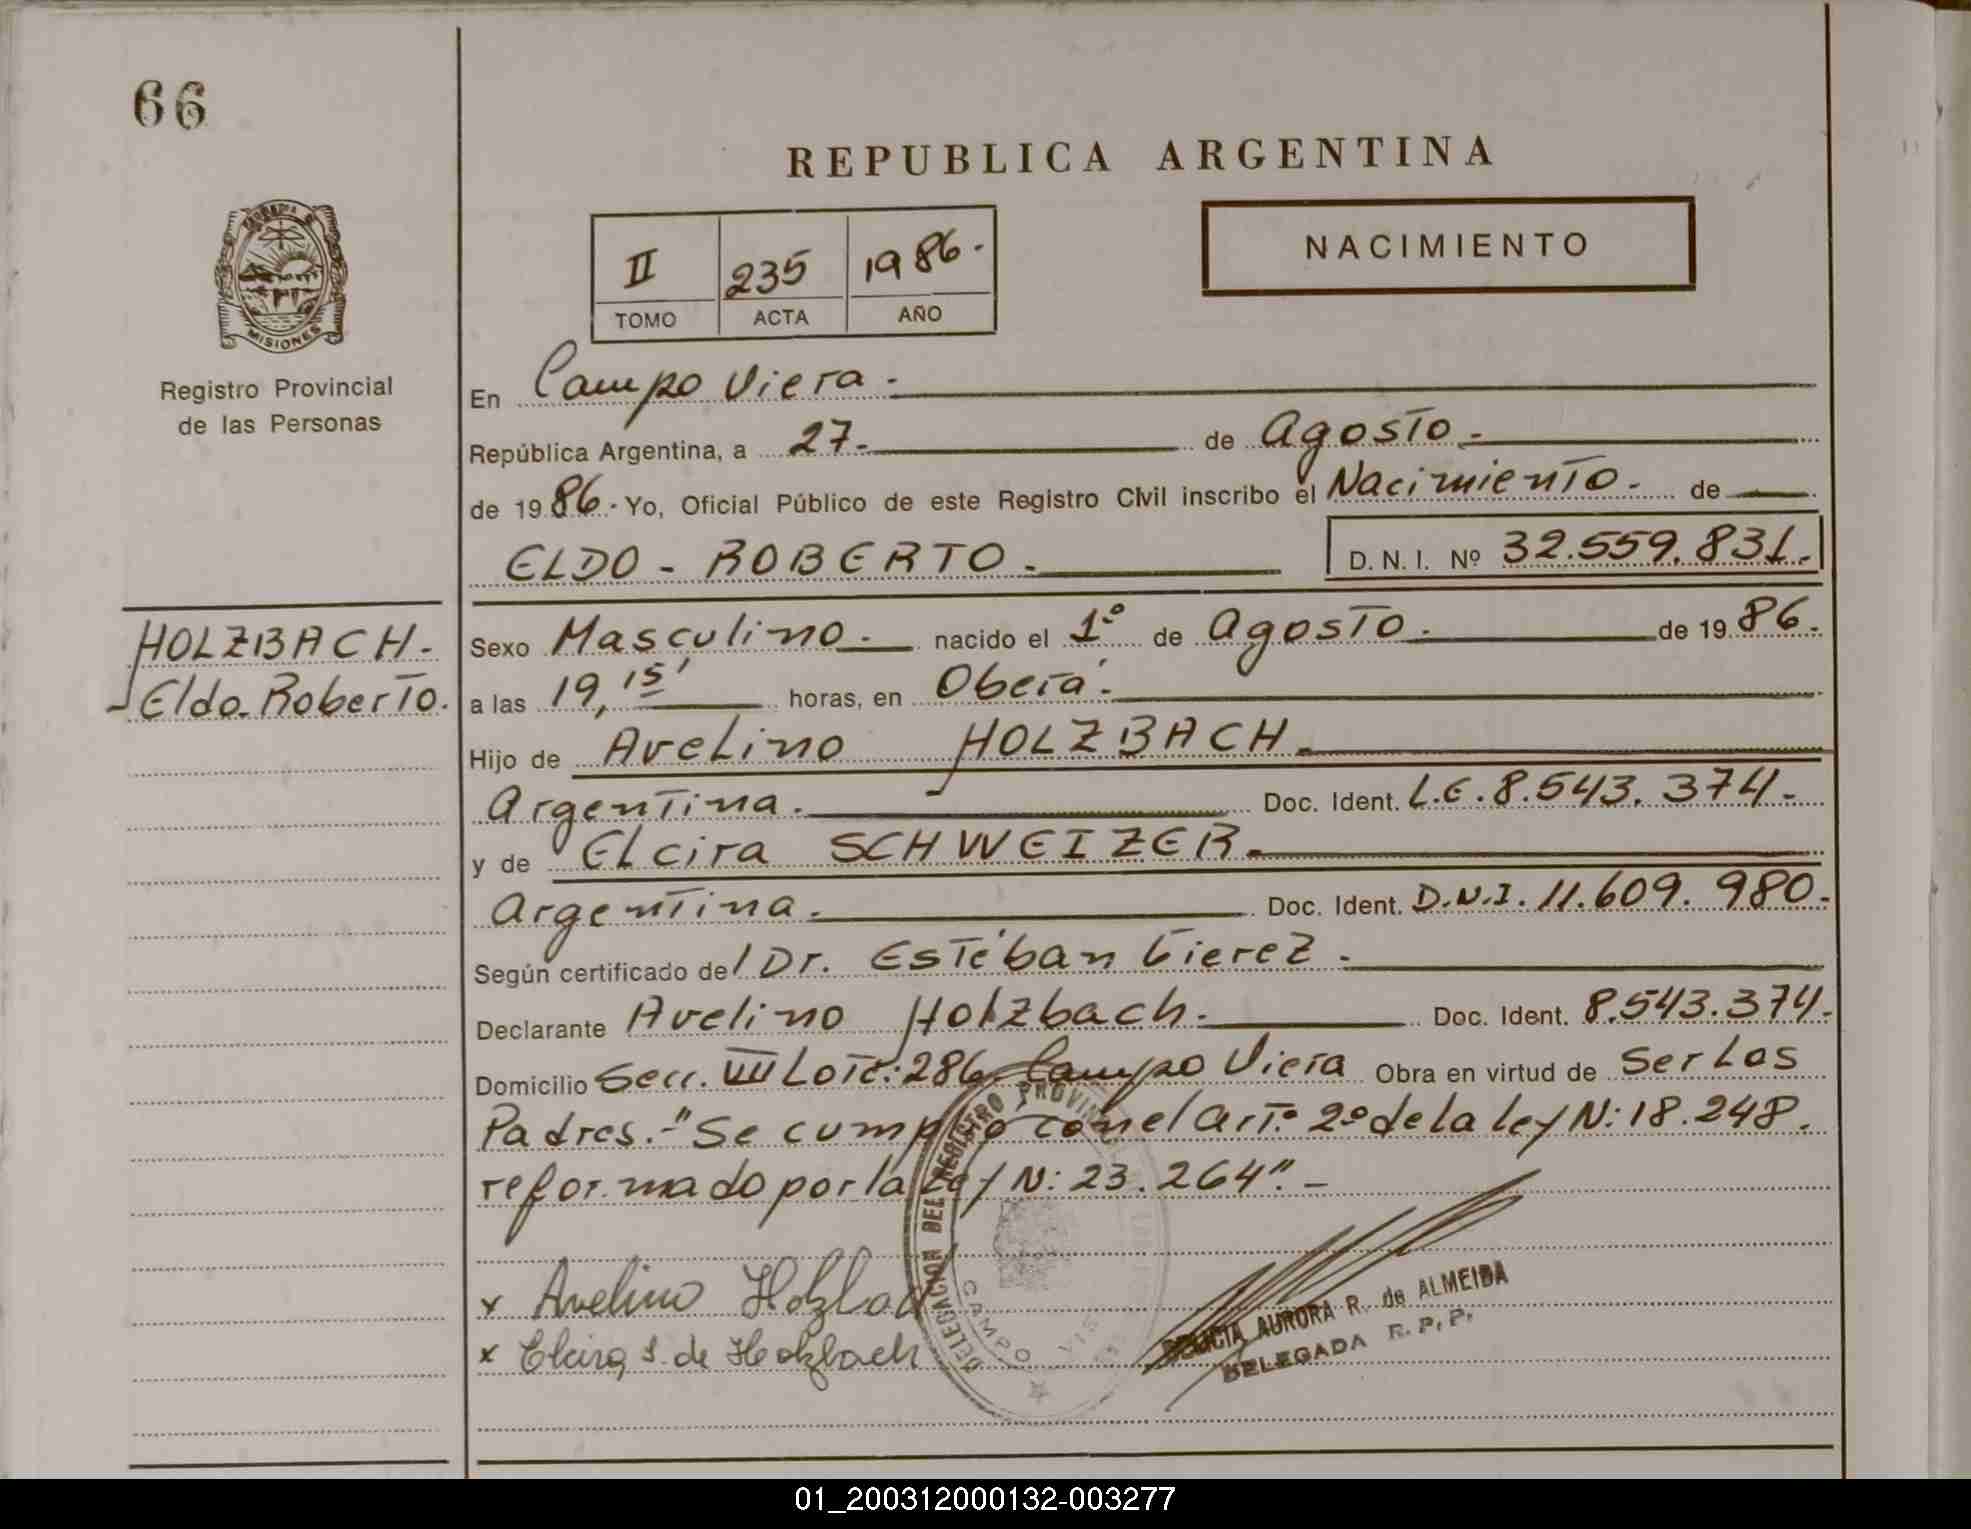 66
REPUBLICA ARGENTINA
NACIMIENTO
II 235 1986.
TOMO ACTA AÑO
MISIONES
Registro Provincial
de las Personas
En Campo Viera.
República Argentina, a 27. de Agosto.
de 1986. Yo, Oficial Público de este Registro Civil inscribo el Nacimiento. de
ELDO - ROBERTO. D.N.I. Nº 32.559.831.
HOLZBACH.
Eldo Roberto.
Sexo Masculino. nacido el 1º de Agosto. de 1986.
a las 19,15' horas, en Oberá.
Hijo de Avelino HOLZBACH.
Argentina. Doc. Ident. L.E. 8.543.374.
y de Elcira SCHWEIZER.
Argentina. Doc. Ident. D.N.I. 11.609.980.
Según certificado del Dr. Estéban
Declarante Avelino Holzbach. Doc. Ident. 8.543.374.
Domicilio Secc. VIII Lote: 286 Campo Viera Obra en virtud de Ser Los
Padres.-"Se cumplió con el Art. 2º de la ley N: 18.248.
reformado por la Ley N: 23.264".-
DELEGACION DEL REGISTRO PROVINCIAL
CAMPO
x Avelino Holzbach
x Elcira S. de Holzbach
DELICIA AURORA R. de ALMEIDA
DELEGADA R. P. P.
01_200312000132-003277